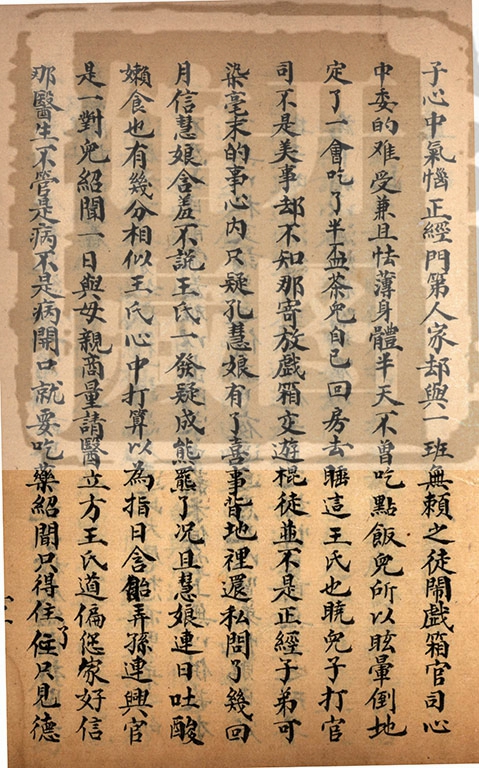 子心中氣惱正經門第人家却與一班無賴之徒鬧戲箱官司心
中委的难受兼且怯薄身體半天不曾吃點飯兒所以眩暈倒地
定了一會吃了半盃茶兒自己回房去睡這王氏也曉兒子打官
司不是美事却不知那寄放戲箱交遊棍徒並不是正經子弟可
染毫末的事心內只疑孔慧娘有了喜事背地裡還私問了幾回
月信慧娘含羞不說王氏一發疑成熊羆了况且慧娘連日吐酸
嬾食也有幾分相似王氏心中打算以為指日含飴弄孫連興官
是一對兒紹聞一日與母親商量請醫立方王氏道偏您家好信
那醫生不管是病不是病開口就要吃藥紹聞只得住了只見德